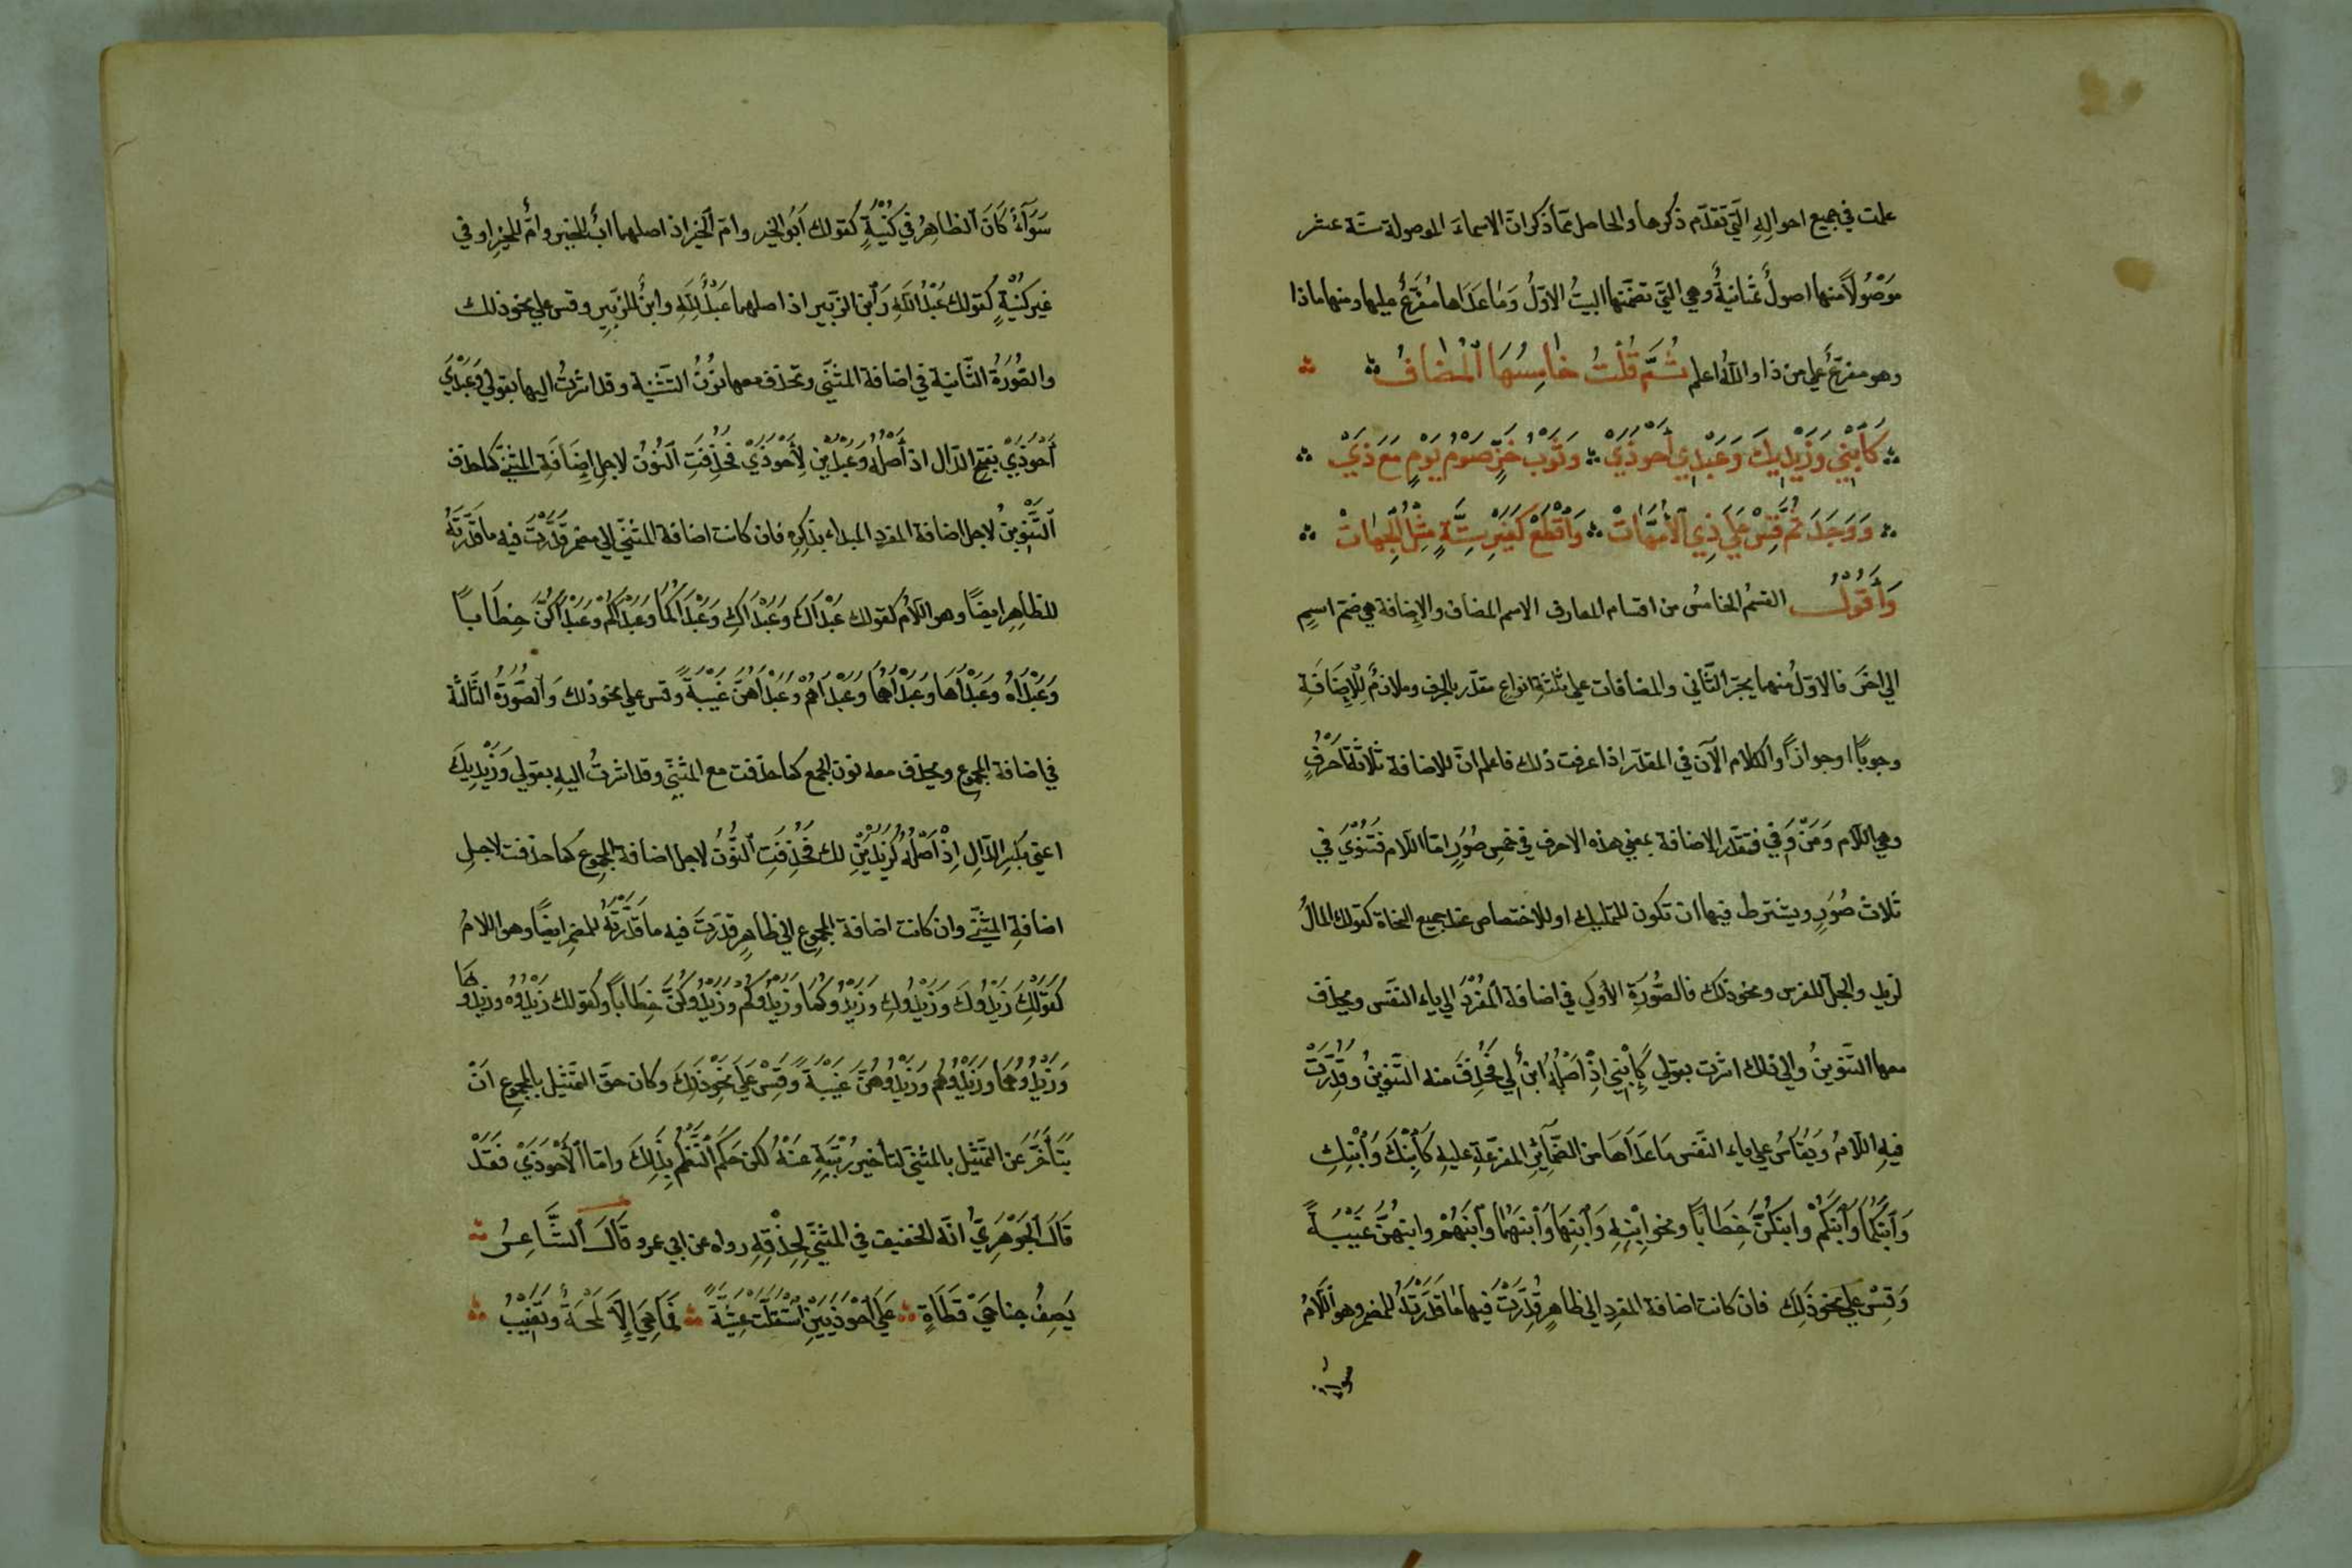 علمت في جميع احوالِهِ الَّتي تقدّم ذكرها والحاصل ممّا ذكر انّ الاسماءَ الموصولة ستة عشر
مَوْصُولًا منها اصولٌ ثمَانيةٌ وهي التي تضمّنها البيتُ الاوّلُ وَمَا عَدَاها مُفَرَّعٌ عليها ومنها ماذا
وهو مفرّعٌ علي من ذا والله اعلم ثُمَّ قُلْتُ خَامِسُهَا ٱلْمُضَافُ
كَٱبْنِي وَزَيْدِيكَ وَعَبْدِي أَحْوَذَيْ وَثَوْبُ خَزٍّ صَوْمُ يَوْمٍ مَعَ ذَيْ
وَوَجَدَ ثُمَّ قِسْ عَلَي ذِي ٱلأُمَّهَاتْ وَٱقْطَعْ كَغَيْرِ سِتَّةٍ مِثْلُ ٱلْجِهَاتْ
وَأَقُوْلُ القسْمُ الخامسُ من اقسام المعارف الاسم المضاف والإضافة هي ضمّ اسمٍ
الي اخرَ فالاوّلُ منهما يجرّ الثَّاني والمضافات علي ثلثةِ انواع مقدّر بالحرف وملازمٌ لِلإِضَافَةِ
وجوبًا او جوازًا والكلام الآن في المقدّر اذا عرفت ذلك فاعلم انّ للاضافة ثَلاثَةَ اَحْرُفٍ
وهي اللّام وَمِنْ وَفِي فتقدّر الاضافة بمعني هذه الاحرف في خمسِ صُوَرٍ امّا اللّام فَتُنْوَي في
ثلاث صُوَرٍ ويشترط فيها ان تكون للتمليك او للاختصاص عند جميع النحاة كقولك المالُ
لزيدٍ والجلّ للفرس ونحو ذلك فالصُّورَة الأولَي في اضافة المُفْرَدِ الي ياء النفس ويحذف
معها التَّنوينُ والي ذلك اشرت بقولي كَٱبْنِي اذْ اَصْلُهُ ابنٌ لي فَحُذِفَ منه التنوينُ وقُدِّرَتْ
فيهِ اللّامُ وَيُقاسُ علي ياء النفس مَا عَدَاهَا من الضّمآئرِ المفرّعةِ عليهِ كَٱبْنِكَ وَٱبْنِكِ
وَٱبْنِكُمَا وَٱبْنِكُمْ وابنكُنَّ خِطَابًا ونحو ابْنِهِ وَٱبْنِهَا وَٱبْنهُمَا وَٱبْنهُمْ وابنهُنَّ غَيْبَةً
وَقِسْ عَلَي نحو ذَلِكَ فان كانت اضافة المفردِ الي ظاهرٍ قُدِّرَتْ فيها مَا قَدَّرْتَهُ للمضمر وهو اللَّامُ
سوآءٌ
سَوَآءٌ كَانَ الظاهِرُ في كُنْيَةٍ كقولك اَبُو الخير وامّ ٱلخيْر اذ اصلهما ابٌ للخير وامٌّ للخيرِ او في
غير كنيْةٍ كقولك عَبْدُ اللّهِ وَٱبن الزّبير اذ اصلهما عَبْدٌ لِلّهِ وابنٌ للزّبيرِ وقس علي نحو ذلك
والصُّورَةُ الثّانية في اضافة المثنّي وتحذف معها نُونُ التّثنية وقد اشرْتُ اليها بقولي وَعَبْدَيْ
أَحْوَذَيْ بفتح الدّال اذ أَصْلُهُ وَعَبْدَيْن لِأَحْوَذَيْ فَحُذِفَتِ ٱلنُّونُ لاجلِ إضَافَةِ المثنّي كما حذف
ٱلتَّنْوِينُ لاجل اضافة المفردِ المبداء بذكرِهِ فان كانت اضافة المثنّي الي مضمر قَدَّرْتَ فيه ما قدَّرْتَهُ
للظاهِرِ ايضًا وهو اللّامُ كقولك عَبْدَاكَ وَعَبْدَاكِ وَعَبْدَاكُمَا وَعَبْدَاكُمْ وَعَبْدَاكُنَّ خِطَابًا
وَعَبْدَاهُ وَعَبْدَاهَا وَعَبْدَاهُمَا وَعَبْدَاهُمْ وَعَبْدَاهُنَّ غَيْبَةً وقس علي نحو ذلك وَٱلصُّورَةُ الثَّالثة
في اضافة المجموع ويحذف معه نون الجمع كما حذفت مع المثنّي وقد اشرتُ اليه بقولي وَزَيْدِيكَ
اعني بكسر الدّالِ اِذْ اَصْلُهُ كَزَيْدِيْنَ لك فَحُذِفَتِ ٱلنُّونُ لاجل اضافة المجموع كما حذفت لاجلِ
اضافةِ المثنّي وان كانت اضافة المجموع الي ظاهرٍ قدّرتَ فيه ما قَدَّرْتَهُ للمضمر ايضًا وهو اللامُ
كَقولك زَيْدُوكَ وَزَيْدُوكِ وَزَيْدُوكُمَا وَزَيْدُوكُمْ وَزَيْدُوكُنَّ خِطَابًا وكقولك زَيْدُوهُ وزيدُوهَا
وَزَيْدُوهُمَا وَزَيْدُوهُمْ وَزَيْدُوهُنَّ غَيْبَةً وَقِسْ عَلَي نَحْوِ ذَلِكَ وكان حقّ التمثيل بالمجموعِ اَنْ
يَتَأَخَّرَ عن التّمثيل بالمثنّي لتأخير رُتْبَتِهِ عَنْهُ لكن حَكَمَ ٱلنَّظْمُ بِذَلِكَ وامّا ٱلْأَحْوَذَيْ فَقَدْ
قَالَ ٱلْجَوْهَرِيُّ انّه الخفيف في المشي لِحِذْقِهِ رواه عن ابي عمرو قَالَ ٱلشَّاعِرُ
يَصِفُ جناحَيْ قَطَاةٍ عَلَي ٱحْوَذِيَّيْنِ ٱسْتَقَلَّتْ عَشِيَّةً فَمَا هِيَ إِلَّا لَمْحَةٌ وَتَغِيْبُ